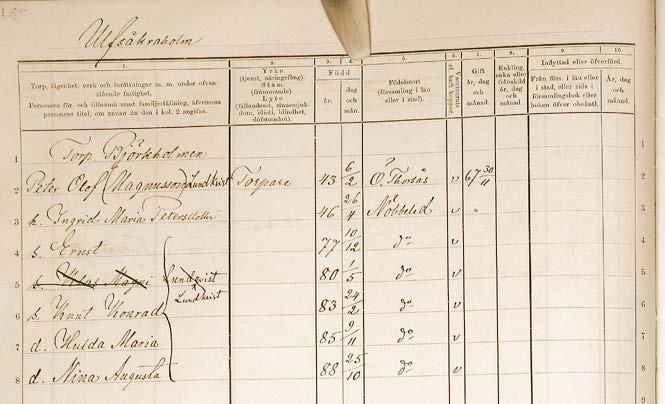 Ulfsåkraholm
1. 2. 3. 4. 5. 6. 7. 8. 9. 10.
Torp, lägenhet, verk och inrättningar m. m. under ofvanstående fastighet.
Personens för- och tillnamn samt familjeställning, äfvensom personens titel, om annan än den i kol. 2 angifna.
Yrke
(tjenst, näringsfång).
Stam
(främmande).
Lyte
(fallandesot, sinnessjukdom, idioti, blindhet, döfstumhet).
Född
år. dag och mån.
Födelseort
(församling i län eller i stad).
Gift
år, dag och månad.
Enkling, enka eller frånskild
år, dag och månad.
Inflyttad eller öfverförd.
Från förs. i län eller i stad, eller sida i församlingsbok eller boken öfver obefintl.
År, dag och månad.
1 Torp. Björkholmen 1
2 Peter Olof (Magnusson) Lundkvist Torpare 43 6/2 Ö. Thorsås v 67 30/11 2
3 h. Ingrid Maria Petersdotter 46 26/4 Nöbbeled v " 3
4 s. Ernst 77 10/12 do v 4
5 Lundqvist 80 1/5 do v 5
Lundkvist
6 s. Knut Konrad 83 24/2 do v 6
7 d. Hulda Maria 85 9/11 do v 7
8 d. Nina Augusta 88 25/10 do v 8
9